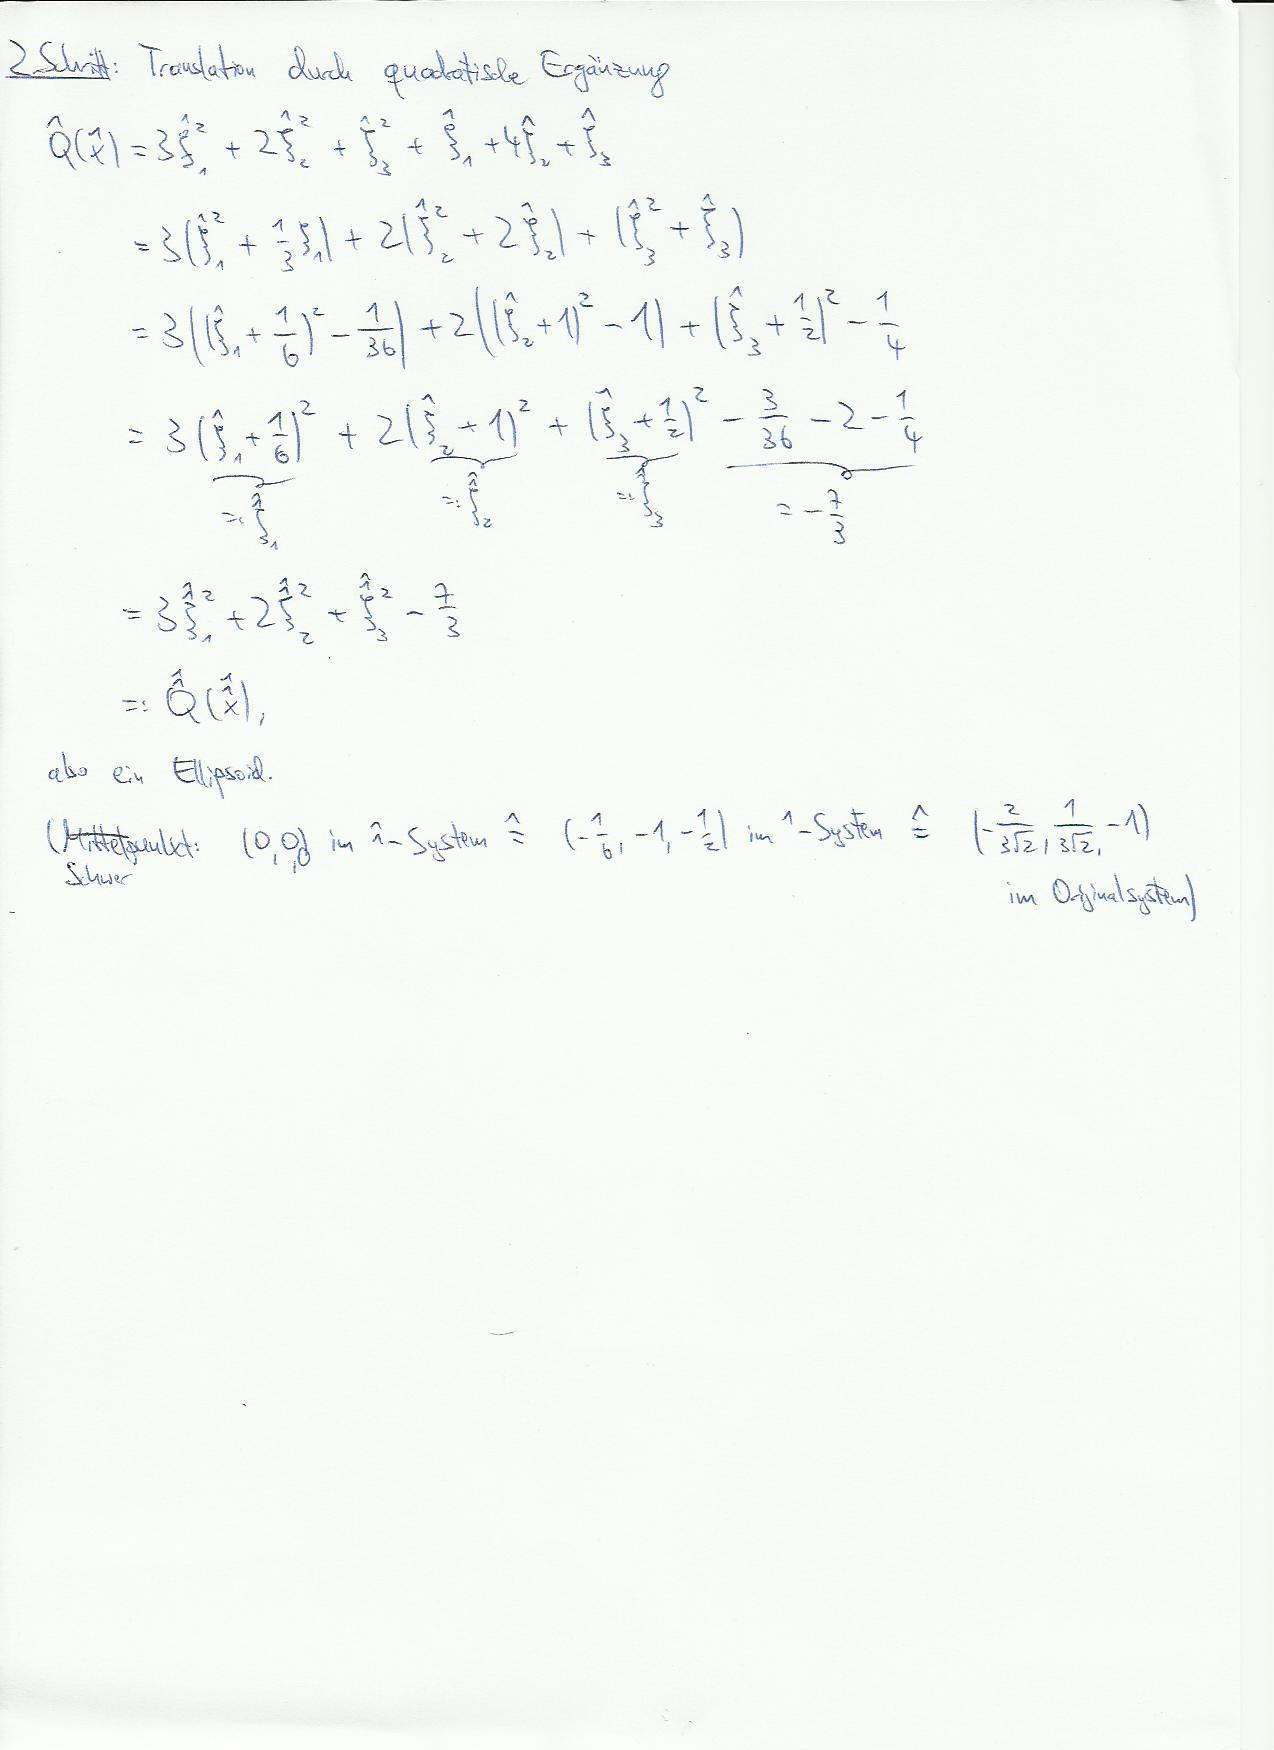 2 Schritt: Translation durch quadratische Ergänzung
Q̂(x̂) = 3ξ̂₁² + 2ξ̂₂² + ξ̂₃² + ξ̂₁ + 4ξ̂₂ + ξ̂₃
= 3(ξ̂₁² + 1/3 ξ₁) + 2(ξ̂₂² + 2ξ̂₂) + (ξ̂₃² + ξ̂₃)
= 3((ξ̂₁ + 1/6)² − 1/36) + 2((ξ̂₂ + 1)² − 1) + (ξ̂₃ + 1/2)² − 1/4
= 3(ξ̂₁ + 1/6)² + 2(ξ̂₂ + 1)² + (ξ̂₃ + 1/2)² − 3/36 − 2 − 1/4
=: ξ̂̂₁ =: ξ̂̂₂ =: ξ̂̂₃ = −7/3
= 3ξ̂̂₁² + 2ξ̂̂₂² + ξ̂̂₃² − 7/3
=: Q̂̂(x̂̂),
also ein Ellipsoid.
(Mittelpunkt: (0,0,0) im ^̂-System ≙ (−1/6, −1, −1/2) im ^-System ≙ (−2/(3√2), 1/(3√2), −1)
Schwer
im Originalsystem)